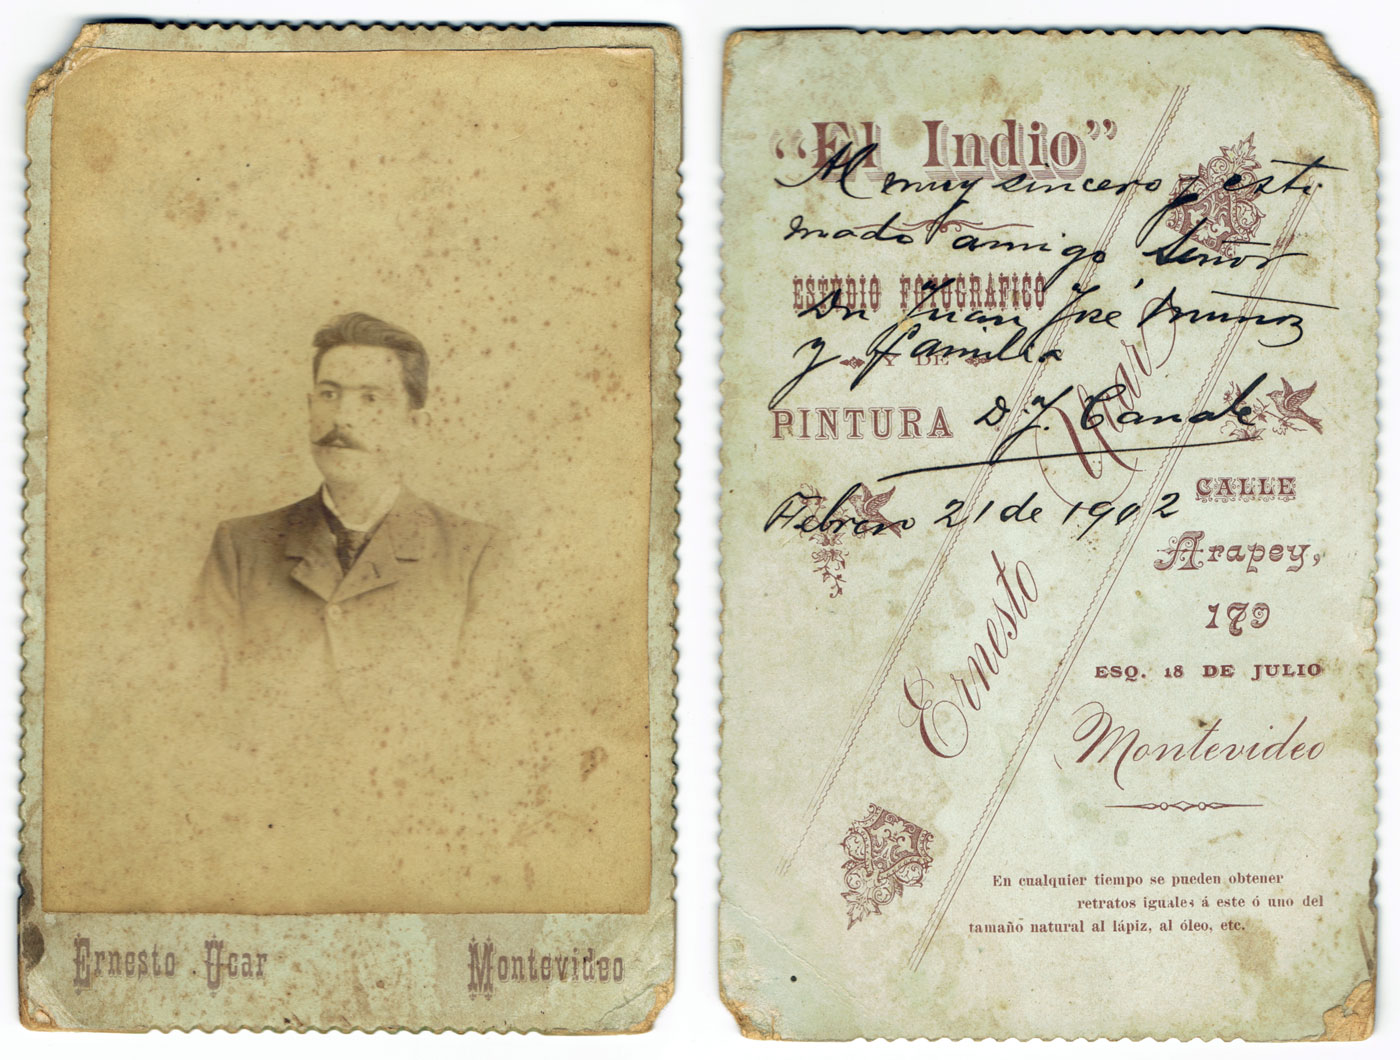 Ernesto Ucar
Montevideo
“El Indio”
Al muy sincero y esti
mado amigo Señor
ESTUDIO FOTOGRAFICO
Dn Juan José Muñoz
y familia
Y DE
PINTURA
D. J. Canale
CALLE
Febrero 21 de 1902
Arapey,
179
ESQ. 18 DE JULIO
Ernesto Ucar
Montevideo
En cualquier tiempo se pueden obtener
retratos iguales á este ó uno del
tamaño natural al lápiz, al óleo, etc.